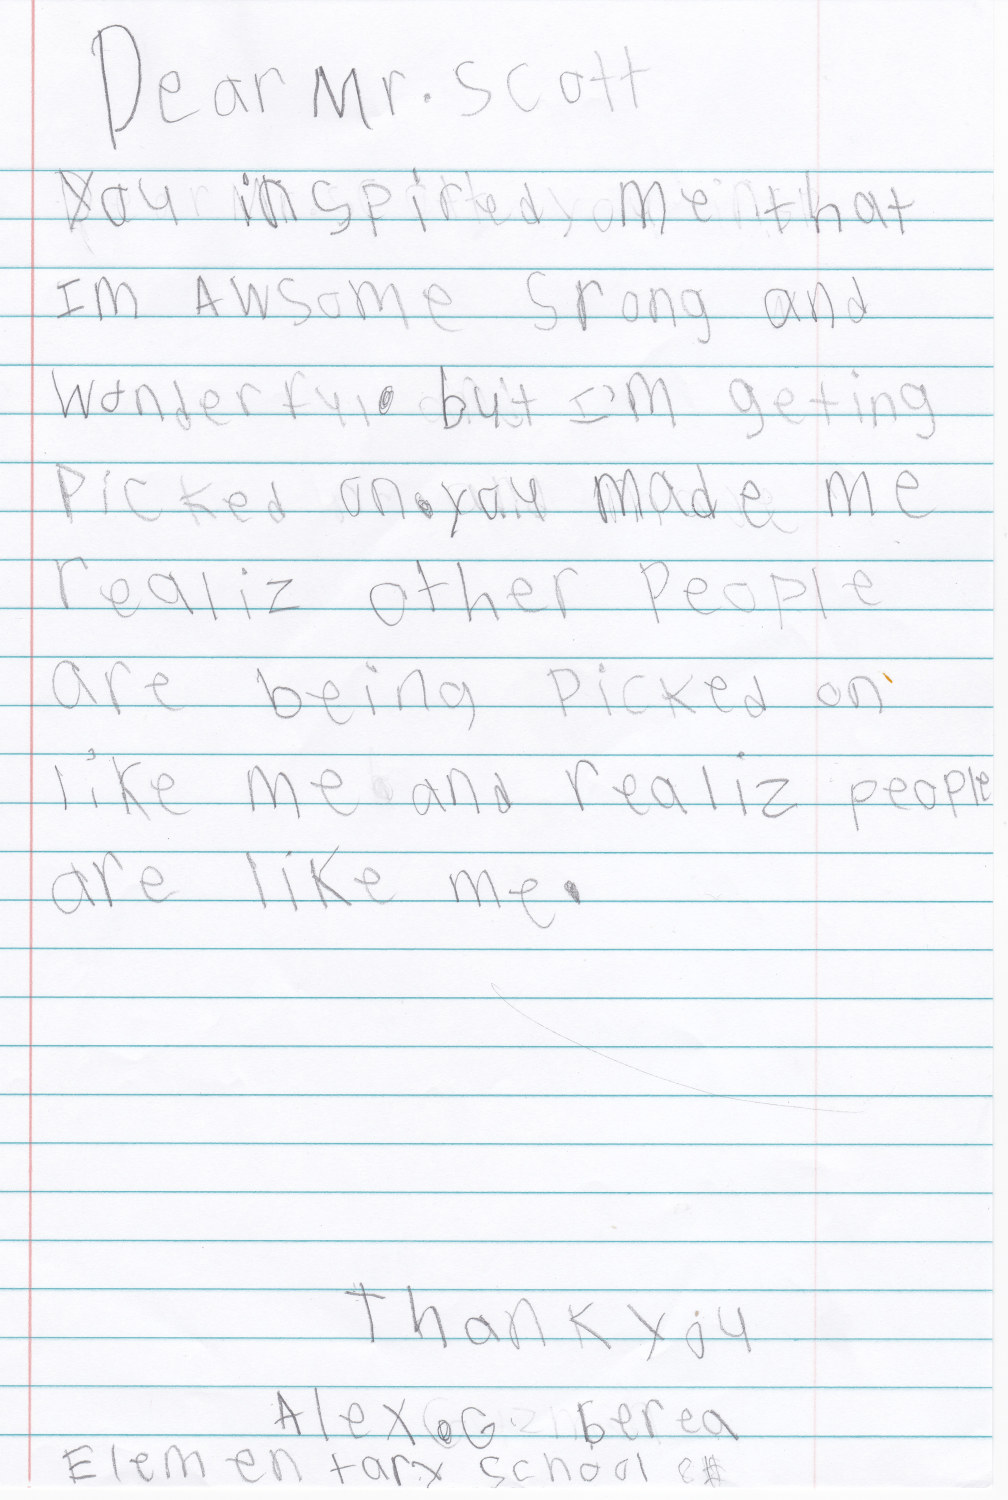 Dear Mr. Scott
You inspired me that
Im Awsome Srong and
Wonderful. but I'm geting
Picked on. you made me
realiz other People
are being Picked on
like me and realiz people
are like me.
Thank you
Alex.G berea
Elementary School